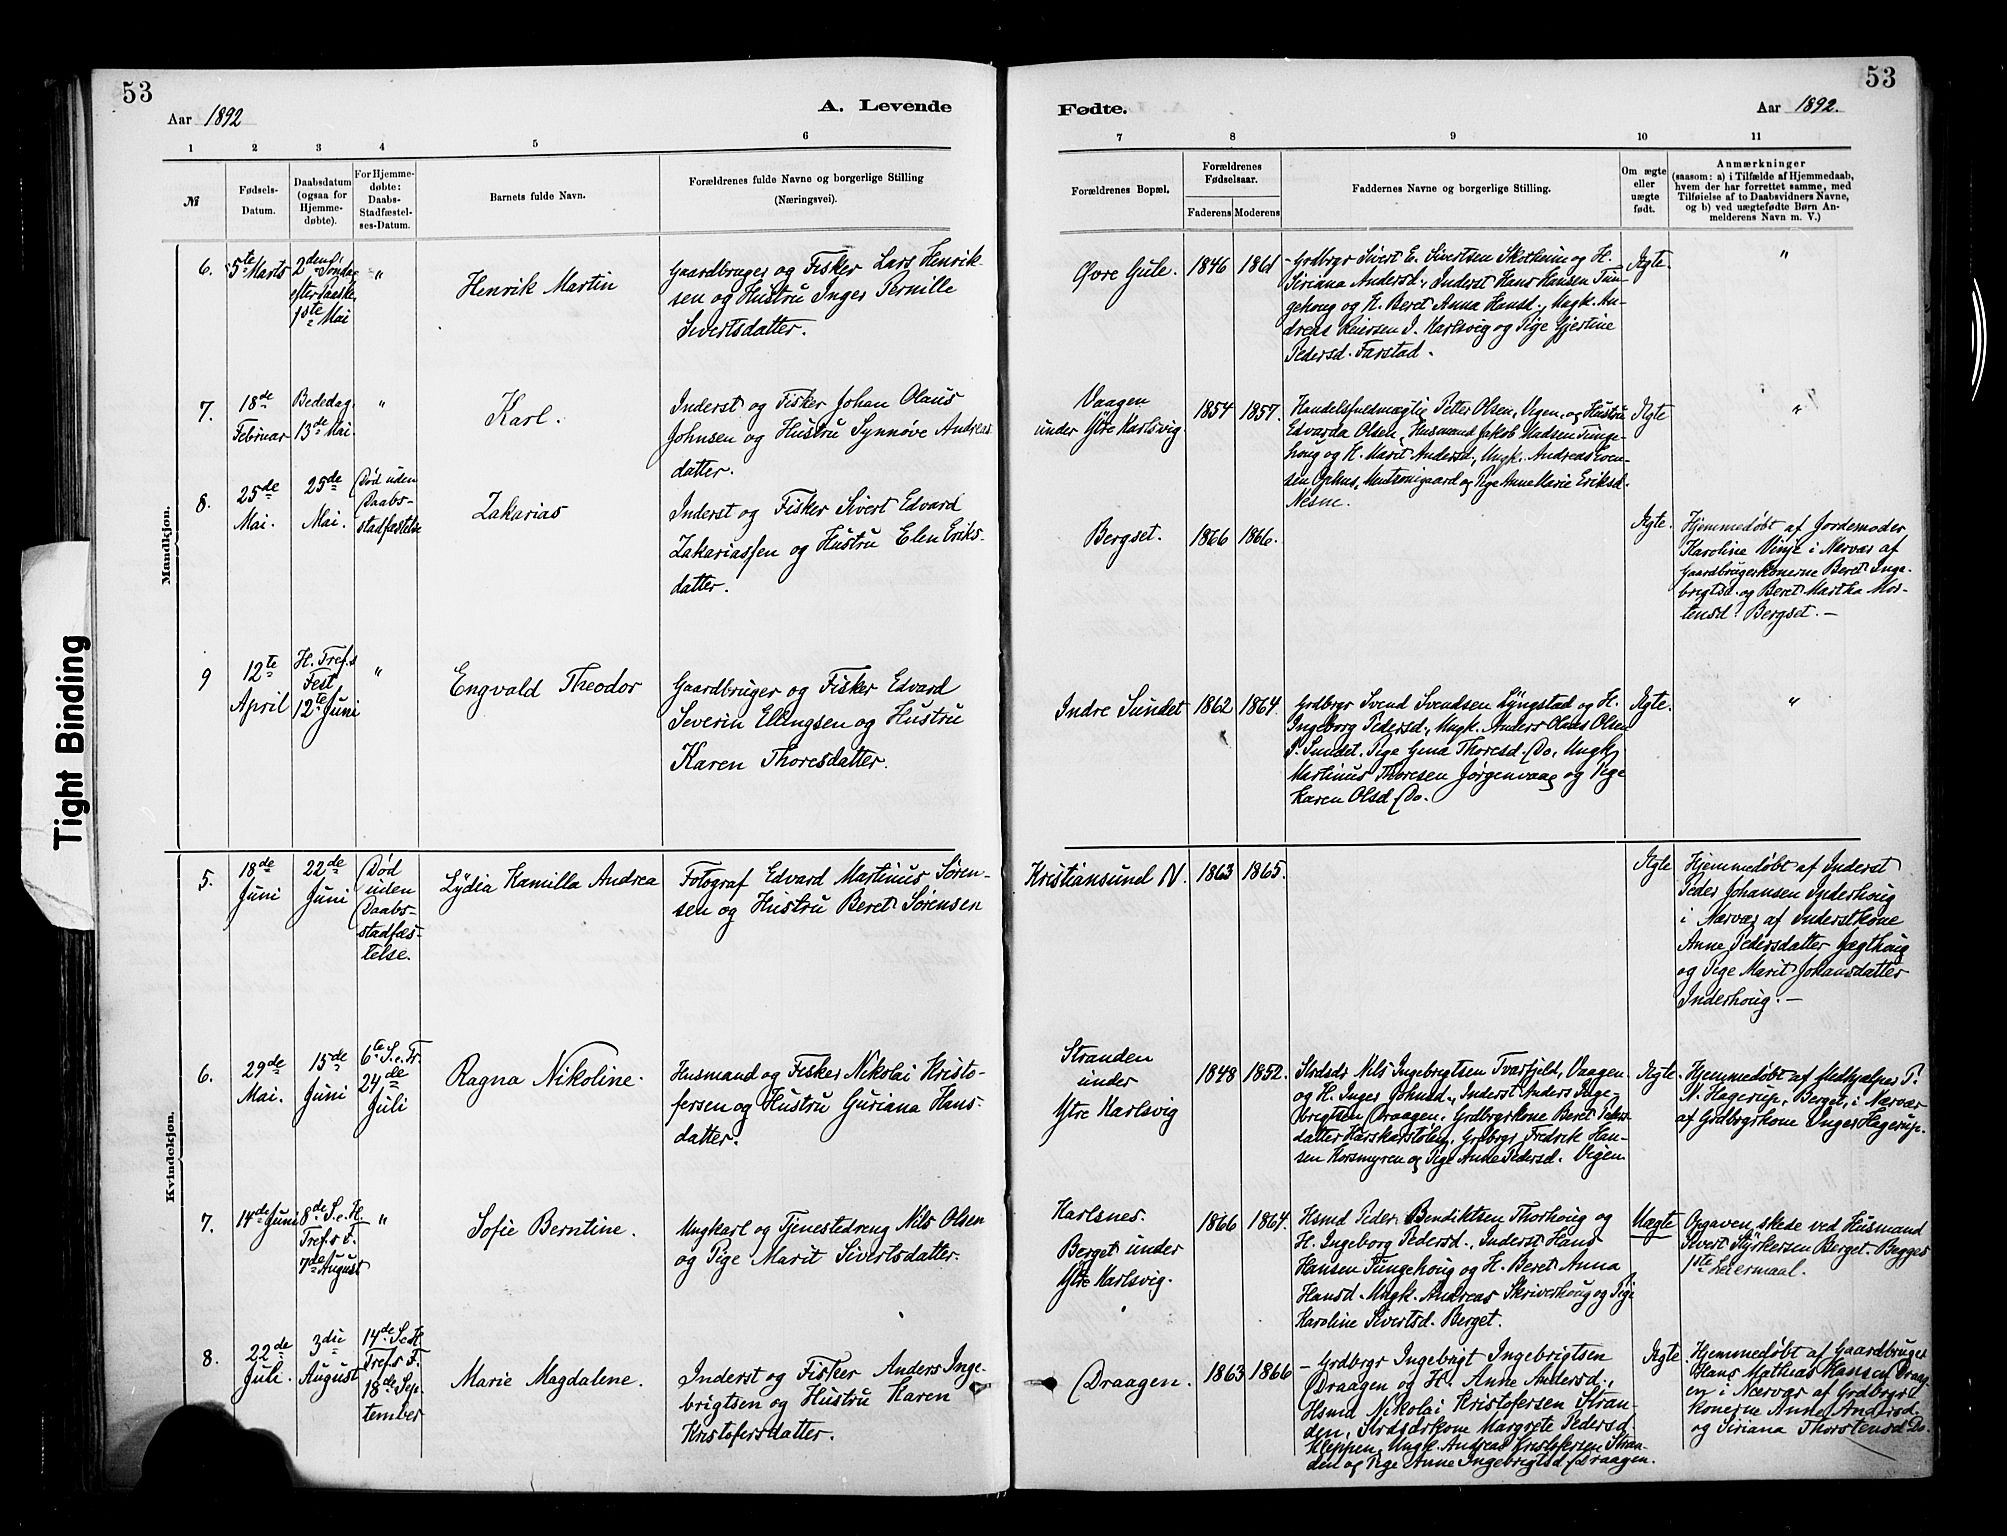 53
Aar 1892
A. Levende
1
2
3
4
5
6
№
Fødsels-
Datum.
Daabsdatum
(ogsaa for
Hjemme-
døbte).
For Hjemme-
døbte:
Daabs-
Stadfæstel-
ses-Datum.
Barnets fulde Navn.
Forældrenes fulde Navne og borgerlige Stilling
(Næringsvei).
Mandkjøn.
6.
5te Marts
2den S.
Søndag
efter Paaske
1ste Mai
"
Henrik Martin
Gaardbruger og Fisker Lars Henrik-
sen og Hustru Inger Pernille
Sivertsdatter.
7.
18de
Februar
Bededag
13de Mai
"
Karl.
Inderst og Fisker Johan Olaus
Johnsen og Hustru Synnøve Andreas
datter.
8.
25de
Mai.
25de
Mai.
Død uden
Daabs-
stadfæstelse
Zakarias
Inderst og Fisker Sivert Edvard
Zakariassen og Hustru Elen Eriks-
datter.
9
12te
April
H. Tref.s
Fest
12te Juni
"
Engvald Theodor
Gaardbruger og Fisker Edvard
Severin Ellingsen og Hustru
Karen Thoresdatter.
Kvindekjøn.
5.
18de
Juni
22de
Juni
Død
uden
Daabs-
stadfæs-
telse.
Lydia Kamilla Andrea
Fotograf Edvard Martinus Søren-
sen og Hustru Beret Sørensen
6.
29de
Mai.
15de
Juni
6te S.e.Tr.
24de
Juli
Ragna Nikoline.
Husmand og Fisker Nikolai Kristo-
fersen og Hustru Guriana Hans-
datter.
7.
14de Juni
8de S.e.H.
Tref.s F.
7de August
"
Sofie Berntine.
Ungkarl og Tjenestedreng Nils Olsen
og Pige Marit Sivertsdatter.
8.
22de
Juli.
3die
August
14de S.e.H.
Tref.s F.
18de Sep-
tember
Marie Magdalene.
Inderst og Fisker Anders Inge-
brigtsen og Hustru Karen
Kristofersdatter.
Tight Binding
Fødte.
Aar 1892.
53
7
8
9
10
11
Forældrenes Bopæl.
Forældrenes
Fødselsaar.
Faderens
Moderens
Faddernes Navne og borgerlige Stilling.
Om ægte
eller
uægte
født.
Anmærkninger
(saasom: a) i Tilfælde af Hjemmedaab,
hvem der har forrettet samme, med
Tilføielse af to Daabsvidners Navne,
og b) ved uægtefødte Børn An-
melderens Navn m. V.)
Øvre Gule.
1846
1861
Grdbrgr Sivert E. Sivertsen Skotheim og H.
Siriana Andersd., Inderst Hans Hansen Tun-
gehoug og H. Beret Anna Hansd., Ungk. An-
dreas Reiersen I. Karlsvig og Pige Gjertine
Pedersd. Farstad.
Ægte.
"
Vaagen
under Ytre Karlsvig
1854
1857.
Handelsfuldmægtig Petter Olsen, Vegen, og Hustru
Edvarda Olsen, Husmand Jakob Madsen Tunge-
houg og H. Marit Andersd., Ungk. Andreas Sven-
sen Ophus, og Pige Anne Marie Eriksd.
Nesne.
Ægte
"
Bergset.
1866
1866.
Ægte.
Hjemmedøbt af Jordemoder
Karoline Vinje i Nærvær af
Gaardbrugerkonerne Beret Inge-
brigtsd. og Beret Martha Mor-
tensd. Bergset.—
Indre Sundet
1862
1864.
Grdbrgr Svend Svendsen Lyngstad og H.
Ingeborg Pedersd., Ungk. Anders Olaus Olsen
I. Sundet, Pige Gina Thoresd. Do, Ungk.
Martinus Thoresen Jørgenvaag og Pige
Karen Olsd. Do.
Ægte.
"
Kristiansund N.
1863
1865.
Ægte
Hjemmedøbt af Inderst
Peder Johansen Inderhoug
i Nærvær af Inderstkone
Anne Pedersdatter Jægthoug
og Pige Marit Johansdatter
Inderhoug.—
Stranden
under
Ytre Karlsvig
1848
1852.
Strdsdr Nils Ingebrigtsen Tvarfjeld, Vaagen
og H. Inger Johnsd., Inderst Anders Inge-
brigtsen Draagen, Grdbrgrkone Beret Peders-
datter Harskarstølen, Grdbrgr Fredrik Han-
sen Korsmyren og Pige Anne Pedersd. Vigen
Ægte.
Hjemmedøbt af Medhjælper P.
N. Hagerup, Berget, i Nærvær
af Grdbrgrkone Inger Hagerup.
Karlsnes.
Berget under
Ytre Karlsvig.
1866
1864.
Hsmd Peder Bendiktsen Thorhoug og
H. Ingeborg Pedersd., Inderst Hans
Hansen Tungehoug og H. Beret Anna
Hansd. Ungk. Andreas Skriverhoug og Pige
Karoline Sivertsd. Berget.
Uægte
Opgaven skede ved Husmand
Sivert Styrkersen Berget. Begges
1ste Leiermaal.
Draagen.
1863
1866
Grdbrgr Ingebrigt Ingebrigtsen
Draagen og H. Anne Andersd.,
Hsmd Nikolai Kristofersen Stran-
den, Strdsdrkone Margrete Pedersd.
Kleppen, Ungk. Andreas Kristofersen Stran-
den og Pige Anne Ingebrigtsd. Draagen.
Ægte.
Hjemmedøbt af Gaardbruger
Hans Mathias Hansen Draag-
en i Nærvær af Grdbrgr-
konerne Anne Andersd.
og Siriana Thorstensd. Do.